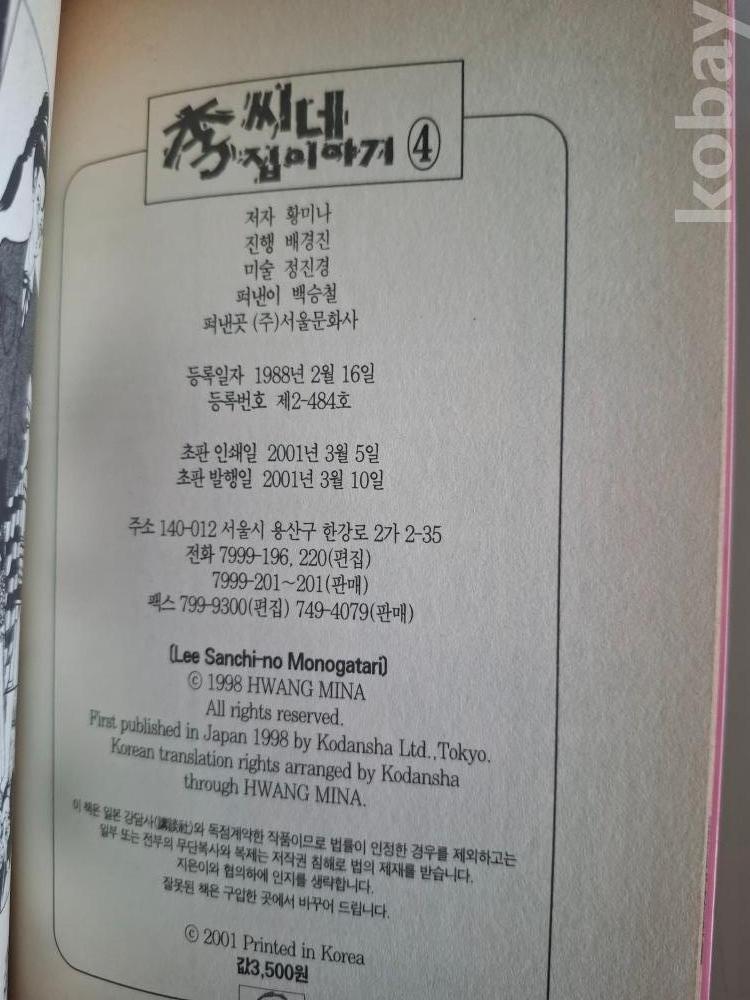 李씨네
집이야기 ④
저자 황미나
진행 배경진
미술 정진경
펴낸이 백승철
펴낸곳 (주)서울문화사
등록일자 1988년 2월 16일
등록번호 제2-484호
초판 인쇄일 2001년 3월 5일
초판 발행일 2001년 3월 10일
주소 140-012 서울시 용산구 한강로 2가 2-35
전화 7999-196, 220(편집)
7999-201~201(판매)
팩스 799-9300(편집) 749-4079(판매)
(Lee Sanchi-no Monogatari)
ⓒ 1998 HWANG MINA
All rights reserved.
First published in Japan 1998 by Kodansha Ltd.,Tokyo.
Korean translation rights arranged by Kodansha
through HWANG MINA.
이 책은 일본 강담사(講談社)와 독점계약한 작품이므로 법률이 인정한 경우를 제외하고는
일부 또는 전부의 무단복사와 복제는 저작권 침해로 법의 제재를 받습니다.
지은이와 협의하에 인지를 생략합니다.
잘못된 책은 구입한 곳에서 바꾸어 드립니다.
ⓒ 2001 Printed in Korea
값3,500원
kobay